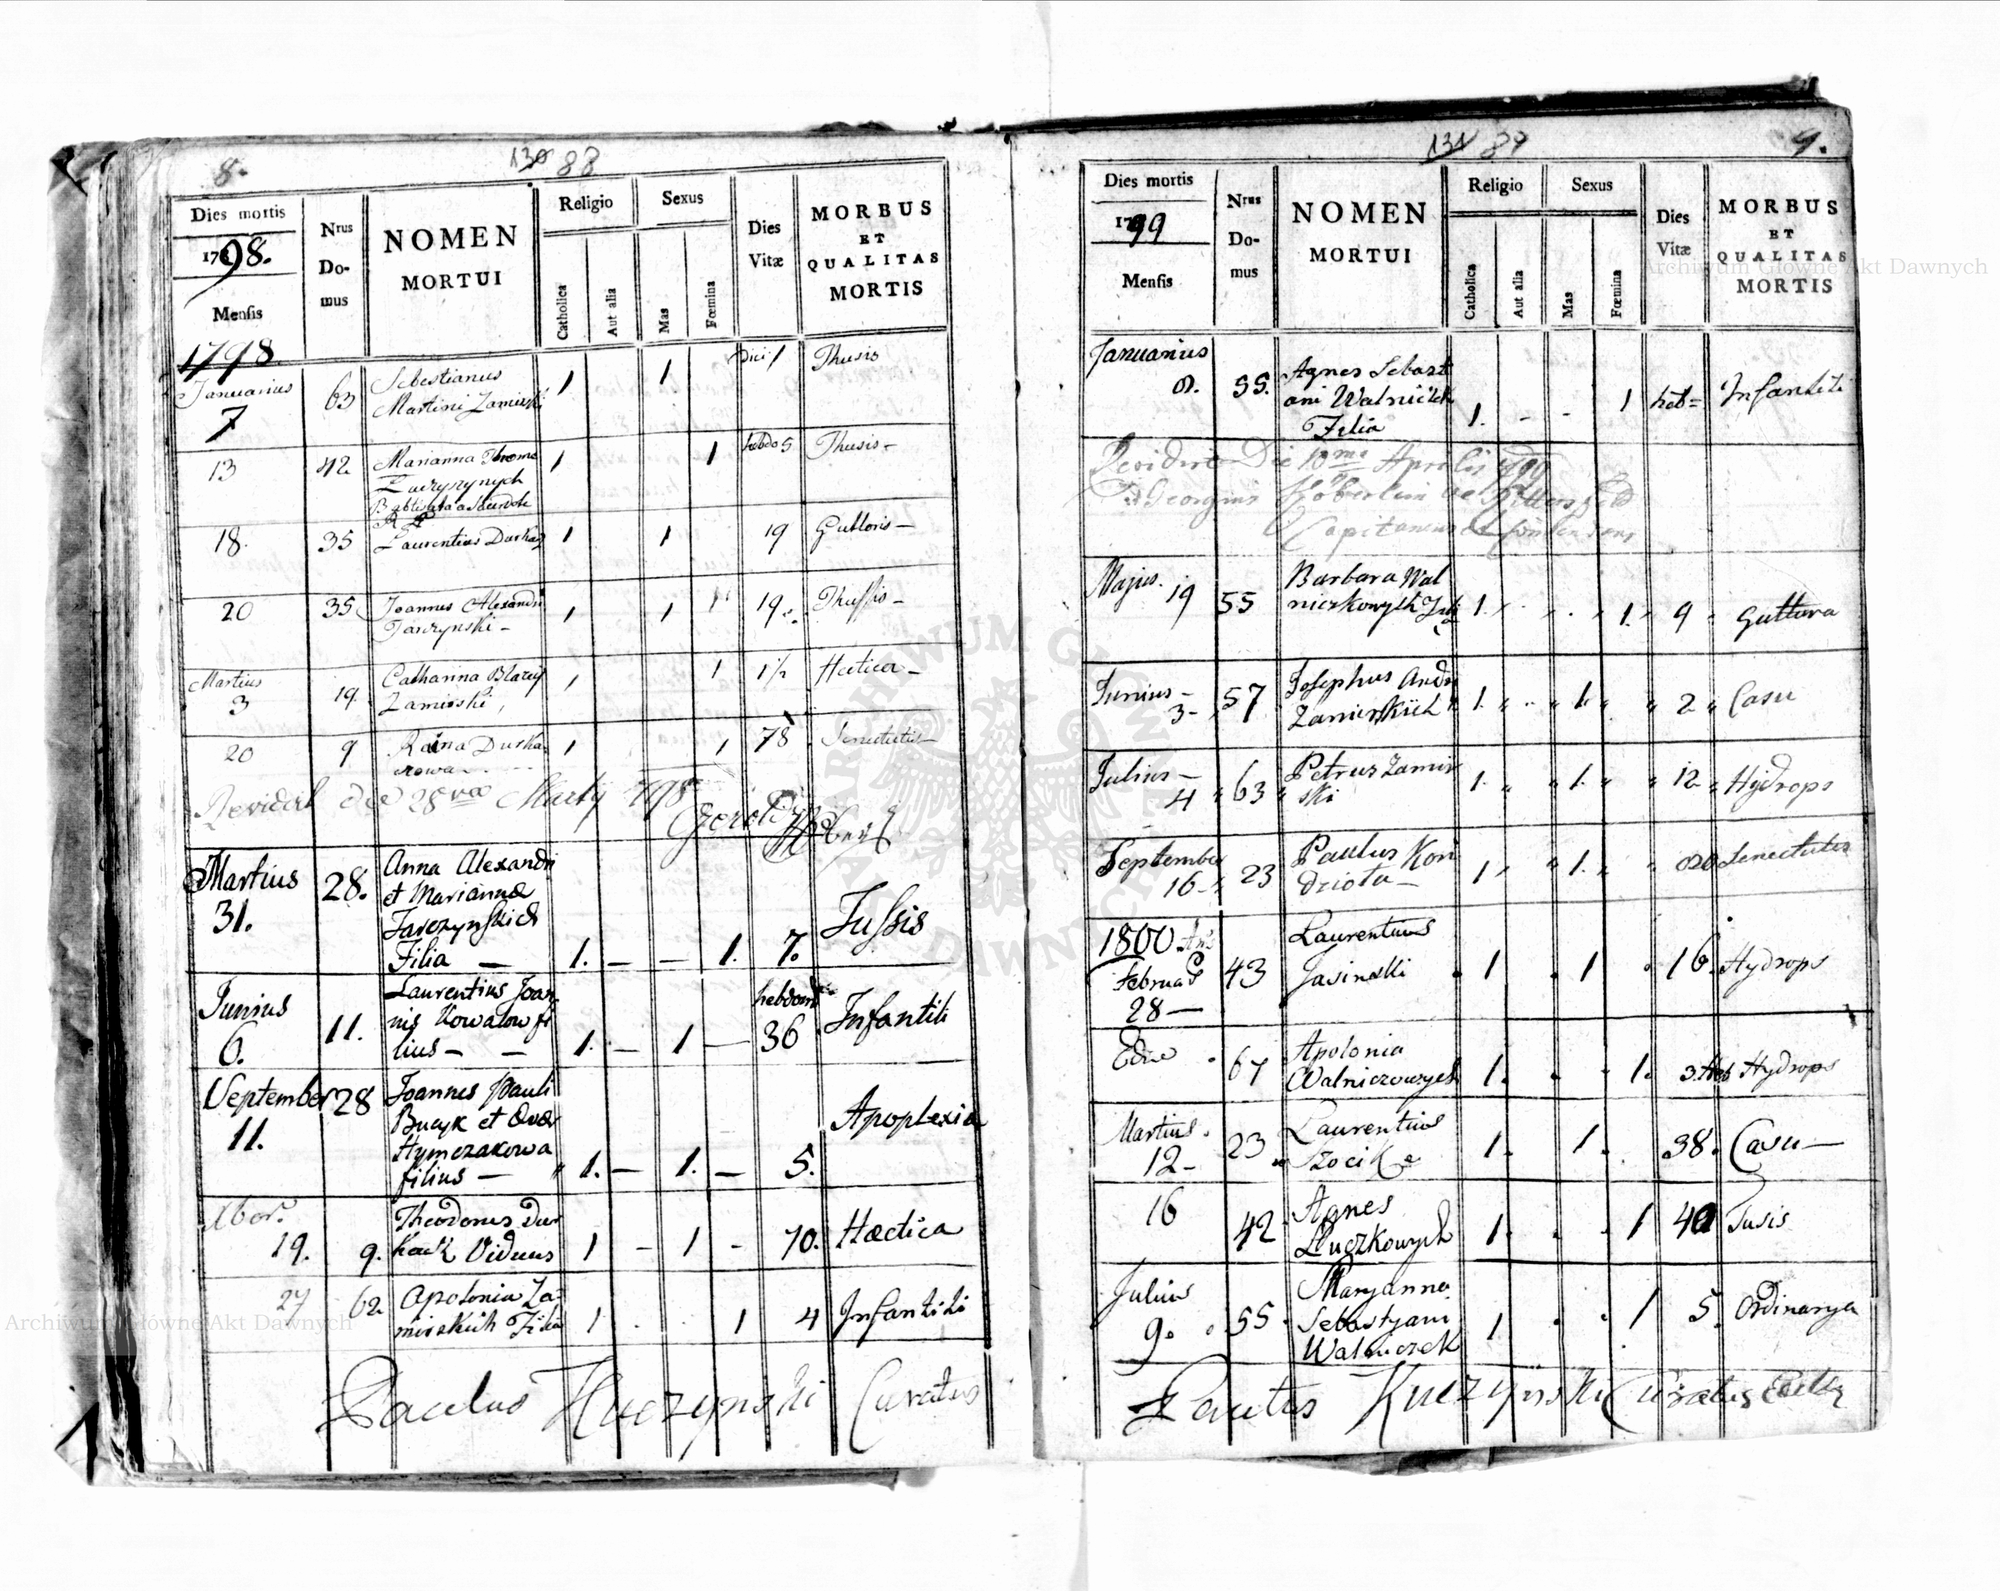 8.
130 88
Dies mortis
1798.
Mensis
Nrus
Do-
mus
NOMEN
MORTUI
Religio
Catholica
Aut alia
Sexus
Mas
Fœmina
Dies
Vitæ
MORBUS
ET
QUALITAS
MORTIS
1798
Januarius
7
63
Sebestianus
Martini Zamirski
1
1
Dici 1
Thusis
13
42
Marianna Thoma
Luczyszynych
1
1
hebdo 5
Thusis -
18.
35
Laurentius Durkacz
1
1
19
Guttoris -
20
35
Joannes Alexandri
Tarczynski -
1
1
19
Thussis -
Martius
3
19
Catharina Blazey
Zamirski,
1
1
1½
Hectica -
20
9
Raina Durka
czowa
1
1
78
Senectutis -
Revidi die 28va Martij 798
Martius
31.
28.
Anna Alexandri
et Mariannæ
Tarczynskich
Filia -
1. - - 1. 7.
Tussis
Junius
6.
11.
Laurentius Joan
nis Kowalow fi
lius - -
1. - 1 -
hebdom
36
Infantili
September
11.
28
Joannes Pauli
Bucyk et Evæ
Hymczakowa
filius -
1. - 1. - 5.
Apoplexia
Xber.
19.
9.
Theodorus Dur
kacz Viduus
1 - 1 - 70.
Hæctica
27
62
Apolonia Za
mirskich Filia
1 1 4
Infantili
Paulus Kuczynski Curatus
131 89
9.
Dies mortis
1799
Mensis
Nrus
Do-
mus
NOMEN
MORTUI
Religio
Catholica
Aut alia
Sexus
Mas
Fœmina
Dies
Vitæ
MORBUS
ET
QUALITAS
MORTIS
Januarius
8.
55.
Agnes Sebast
ani Walniczek
Filia
1. - - 1 heb=
Infantili
Die 10ma Aprilis 799
Georgius
Capitaneus
Majus. 19
55
Barbara Wal
niczkowych
1. 1. 9
Guttura
Junius -
3 -
57
Josephus Andr
Zamirskich
1. 1. 2
Casu
Julius -
4
63
Petrus Zamir
ski
1. 1. 12
Hydrops
September
16 -
23
Paulus Kon
dziola -
1 1. 80
Senectutis
1800
Februar
28 -
43
Laurentius
Jasinski
1 1 16.
Hydrops
Edie
67
Apolonia
Walniczowych
1. 1. 3. Heb
Hydrops
Martius.
12 -
23
Laurentius
Szocik
1. 1. 38.
Casu -
16
42
Agnes
Łuczkowych
1. 1 40
Tusis
Julius
9.
55
Maryanna
Sebastyani
Walniczek
1 1 5.
Ordinarya
Paulus Kuczynski Curatus
ARCHIWUM GŁÓWNE AKT DAWNYCH
Archiwum Główne Akt Dawnych
Archiwum Główne Akt Dawnych